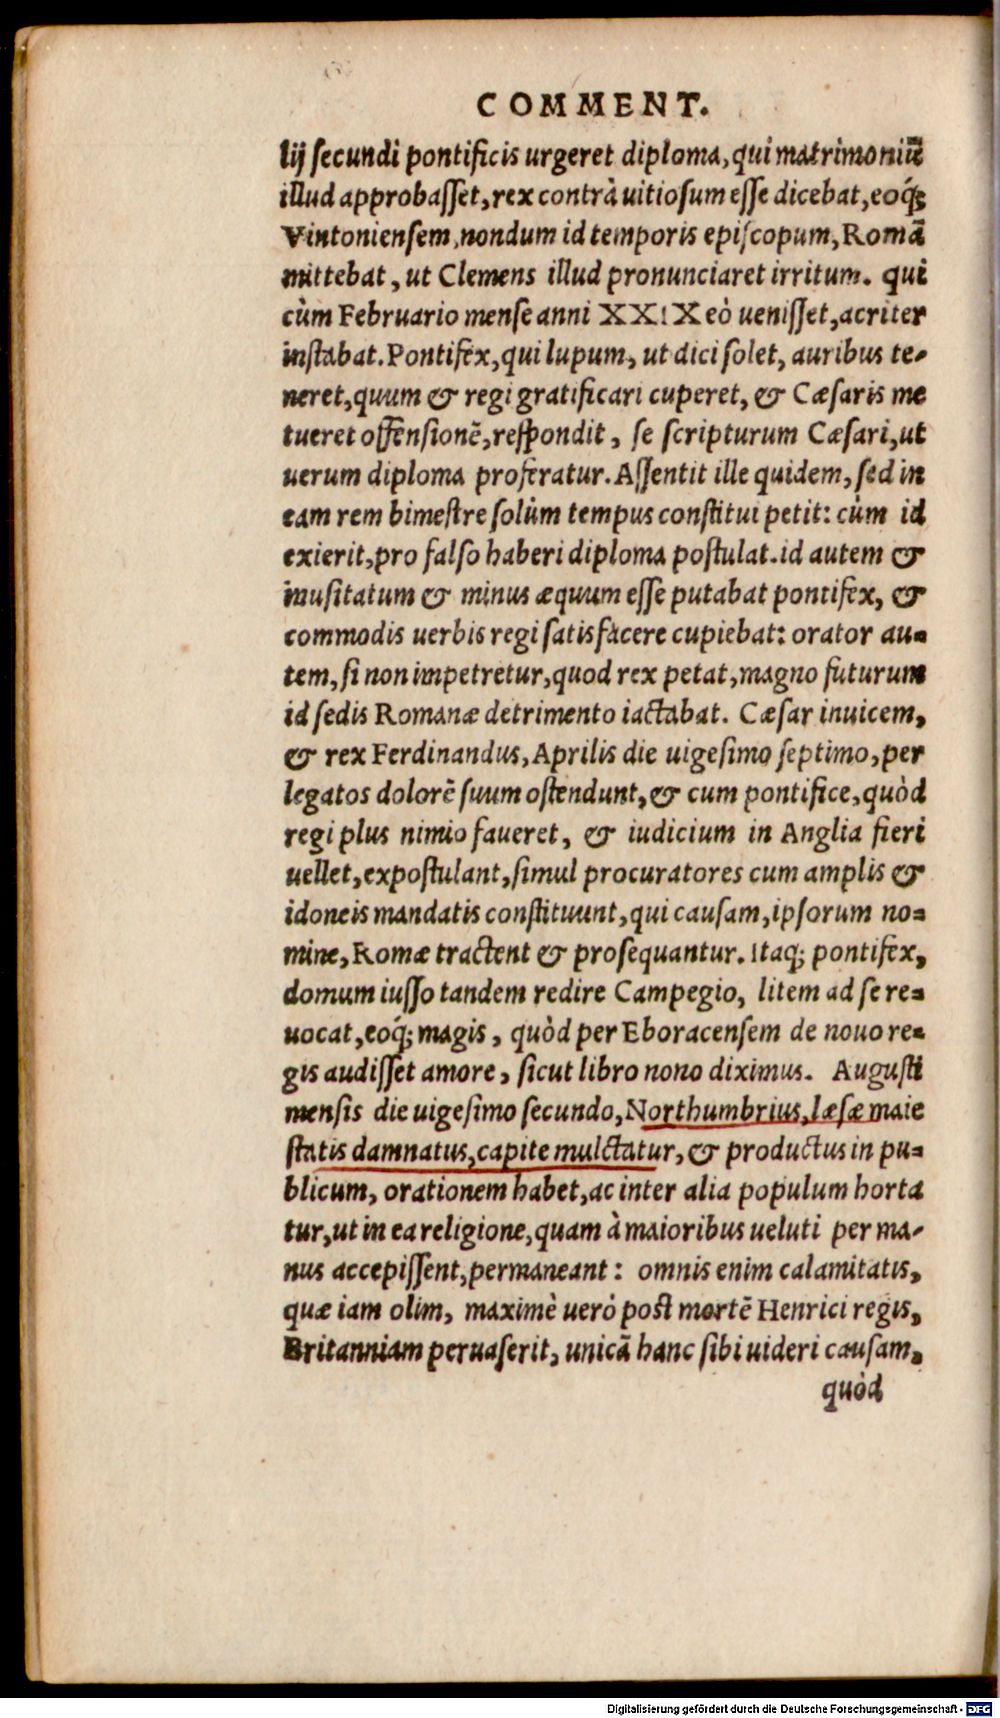 COMMENT.
lij secundi pontificis urgeret diploma, qui matrimoniū
illud approbasset, rex contrà uitiosum esse dicebat, eoq́;
Vintoniensem, nondum id temporis episcopum, Romã
mittebat, ut Clemens illud pronunciaret irritum. qui
cùm Februario mense anni XXIX eò uenisset, acriter
instabat. Pontifex, qui lupum, ut dici solet, auribus te-
neret, quum & regi gratificari cuperet, & Cæsaris me
tueret offensionẽ, respondit, se scripturum Cæsari, ut
uerum diploma proferatur. Assentit ille quidem, sed in
eam rem bimestre solùm tempus constitui petit: cùm id
exierit, pro falso haberi diploma postulat. id autem &
inusitatum & minus æquum esse putabat pontifex, &
commodis uerbis regi satisfacere cupiebat: orator au-
tem, si non impetretur, quod rex petat, magno futurum
id sedis Romanæ detrimento iactabat. Cæsar inuicem,
& rex Ferdinandus, Aprilis die uigesimo septimo, per
legatos dolorẽ suum ostendunt, & cum pontifice, quòd
regi plus nimio faueret, & iudicium in Anglia fieri
uellet, expostulant, simul procuratores cum amplis &
idoneis mandatis constituunt, qui causam, ipsorum no-
mine, Romæ tractent & prosequantur. Itaq; pontifex,
domum iusso tandem redire Campegio, litem ad se re-
uocat, eoq́; magis, quòd per Eboracensem de nouo re-
gis audisset amore, sicut libro nono diximus. Augusti
mensis die uigesimo secundo, Northumbrius, læsæ maie
statis damnatus, capite mulctatur, & productus in pu-
blicum, orationem habet, ac inter alia populum horta
tur, ut in ea religione, quam à maioribus ueluti per ma-
nus accepissent, permaneant: omnis enim calamitatis,
quæ iam olim, maximè uerò post mortẽ Henrici regis,
Britanniam peruaserit, unicã hanc sibi uideri causam,
quòd
Digitalisierung gefördert durch die Deutsche Forschungsgemeinschaft - DFG